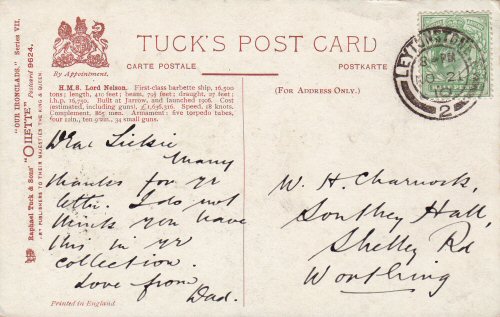 TUCK'S POST CARD
By Appointment.
CARTE POSTALE
POSTKARTE
(FOR ADDRESS ONLY.)
H.M.S. Lord Nelson. First-class barbette ship, 16,500
tons; length, 410 feet; beam, 79½ feet; draught, 27 feet;
i.h.p. 16,750. Built at Jarrow, and launched 1906. Cost
(estimated, including guns), £1,636,316. Speed, 18 knots.
Complement, 865 men. Armament: five torpedo tubes,
four 12in., ten 9·2in., 34 small guns.
"OUR IRONCLADS." Series VII.
Raphael Tuck & Sons' "OILETTE" Postcard 9624.
BY PUBLISHERS TO THEIR MAJESTIES THE KING & QUEEN.
LEYTONSTONE
PM
10
2
Dear
Many
thanks for yr
letter. I do not
think you have
this in yr
collection.
Love from
Dad.
W. H. Charnock,
Southey Hall,
Shelley Rd
Worthing
Printed in England